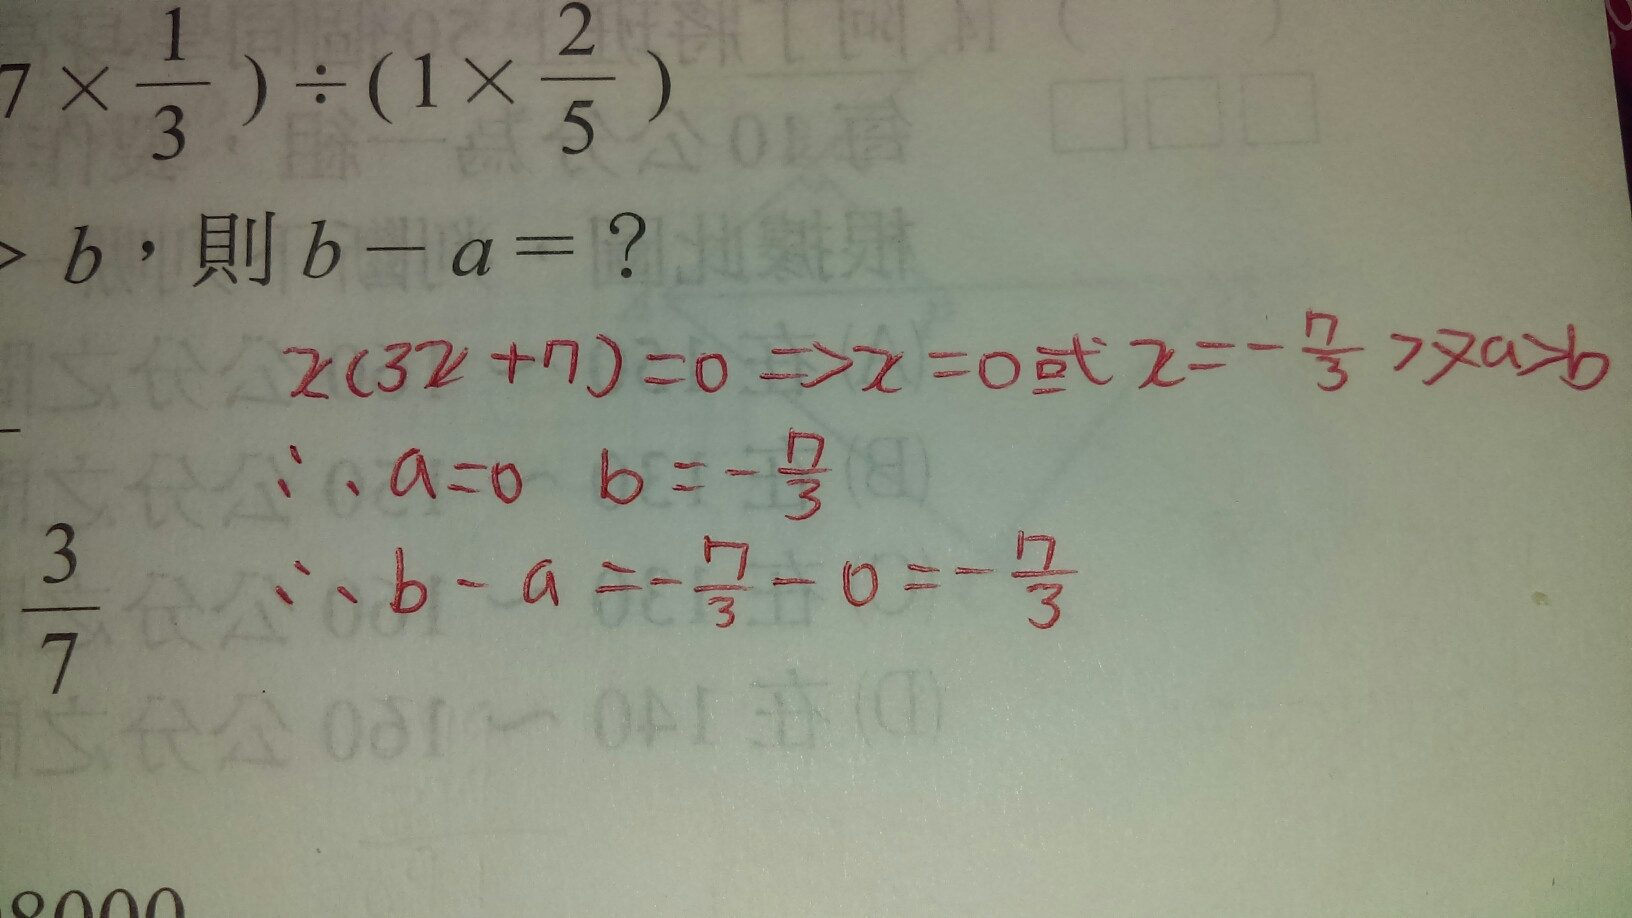 7 × 1/3 ) ÷ ( 1 × 2/5 )
> b，則 b － a ＝？
x(3x+7)=0 => x=0或x=-7/3，又a>b
∴ a=0 b=-7/3
∴ b-a=-7/3-0=-3/7
3/7
8000